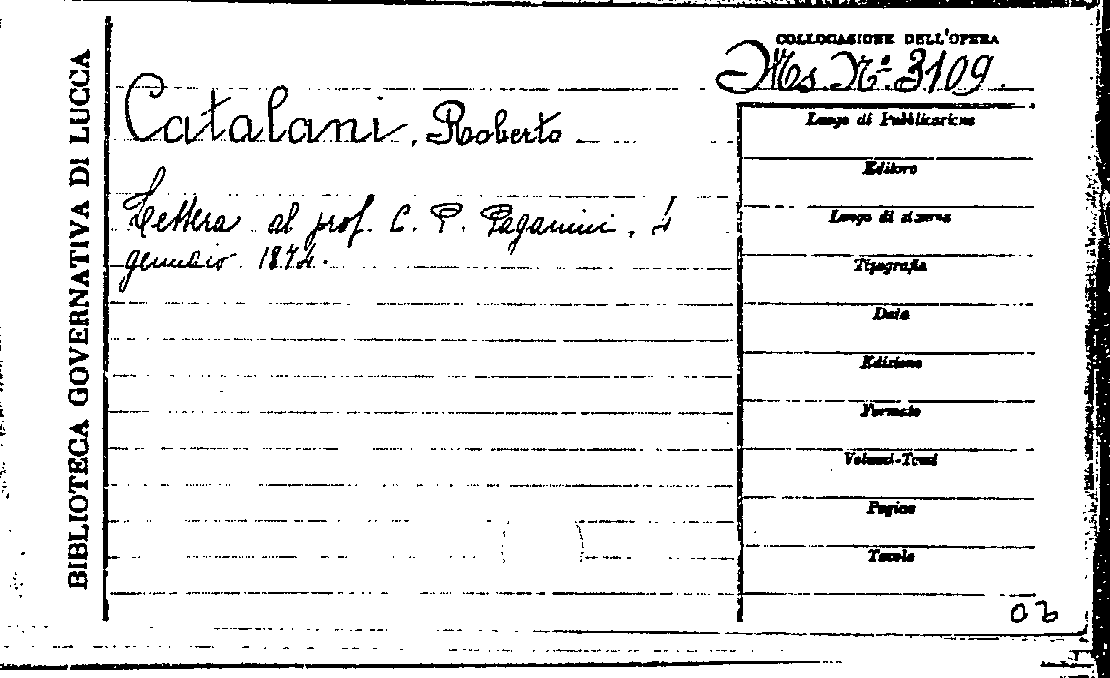 BIBLIOTECA GOVERNATIVA DI LUCCA
COLLOCASIONE DELL'OPERA
Ms. Nº. 3109.
Catalani, Roberto
Lettera al prof. C. P. Paganini,
gennaio 1874.
Luogo di Pubblicazione
Editore
Luogo di stampa
Tipografia
Data
Edizione
Formato
Volumi-Tomi
Pagine
Tavole